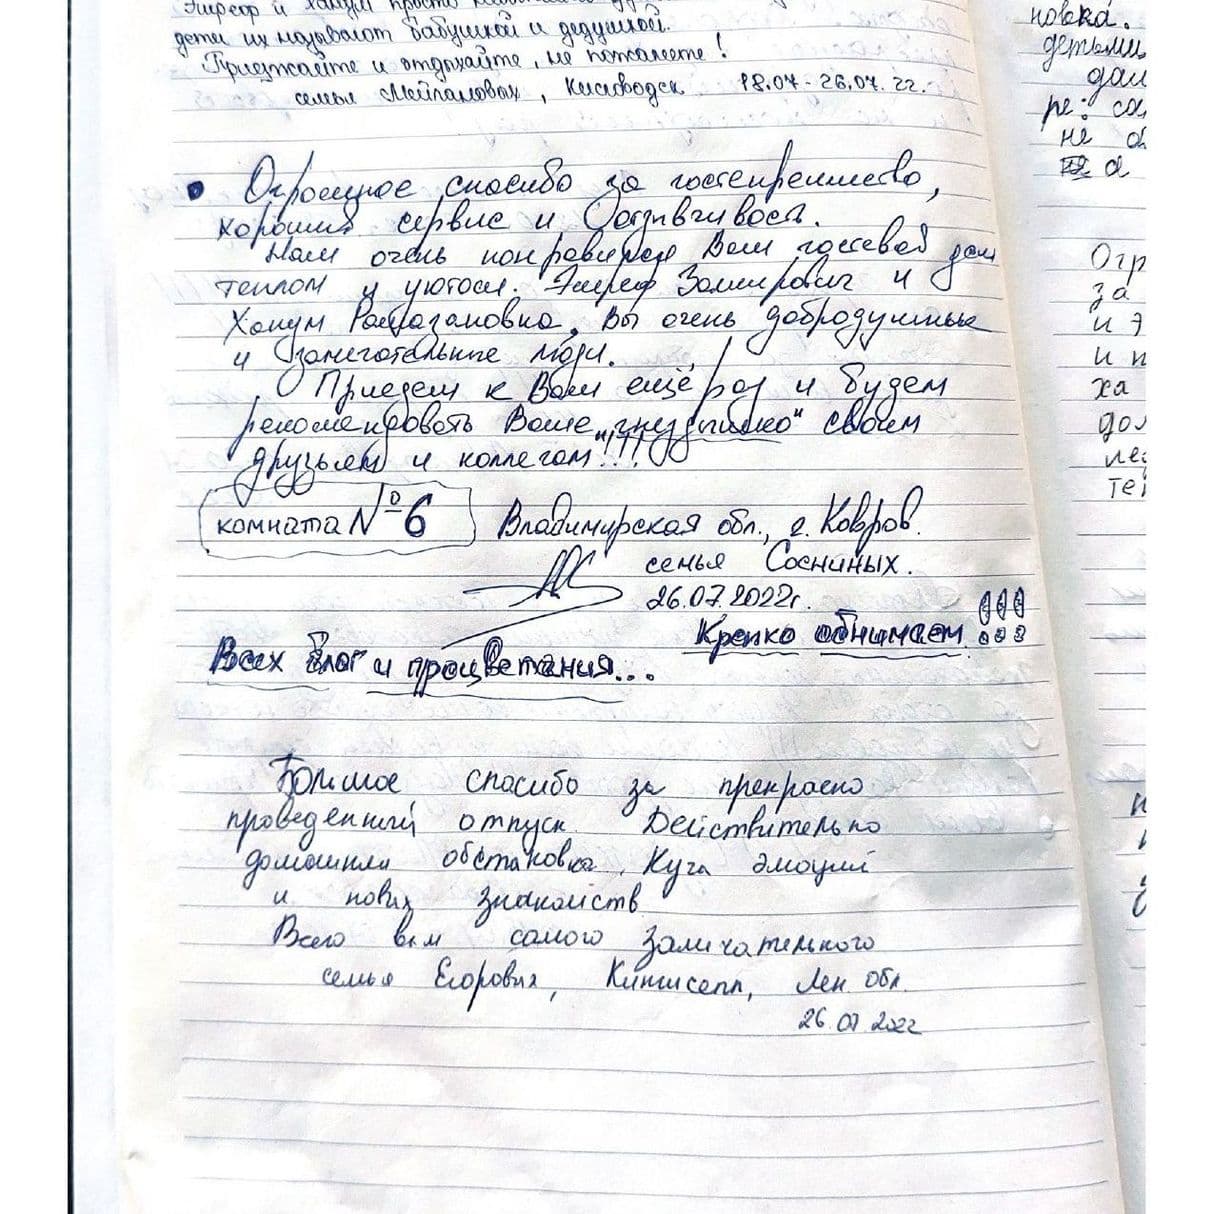 Эшреф и Ханум просто
дети их называют бабушкой и дедушкой.
Приезжайте и отдыхайте, не пожалеете!
семья Мейламовых, Кисловодск 18.07-26.07.22.
• Огромное спасибо за гостеприимство,
хороший сервис и отзывчивость.
Нам очень понравился Ваш гостевой дом
теплом и уютом. Эшреф Замирович и
Ханум Рамазановна, Вы очень добродушные
и замечательные люди.
Приедем к Вам ещё раз и будем
рекомендовать Ваше "гнездышко" своим
друзьям и коллегам!!!
комната №6 Владимирская обл., г. Ковров.
семья Сосниных.
26.07.2022г.
Крепко обнимаем!!!
Всех благ и процветания...
Большое спасибо за прекрасно
проведенный отпуск. Действительно
домашняя обстановка. Куча эмоций
и новых знакомств
Всего вам самого замичательного
семья Егоровых, Кингисепп, Лен обл.
26.07.2022
новка.
детьми
дал
ре: со
не о
а
Огр
за
и Э
и п
ха
дол
ле
тел